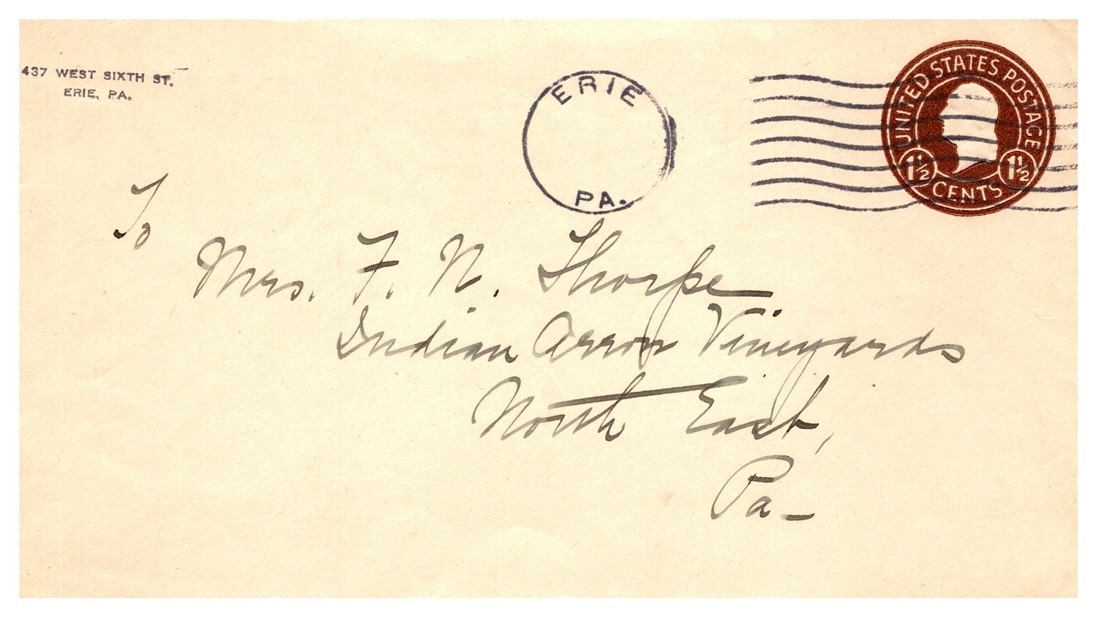 437 WEST SIXTH ST.
ERIE, PA.
ERIE
PA.
UNITED STATES POSTAGE
1½ 1½
CENTS
To
Mrs. F. N. Thorpe
Indian Arrow Vineyards
North East,
Pa_